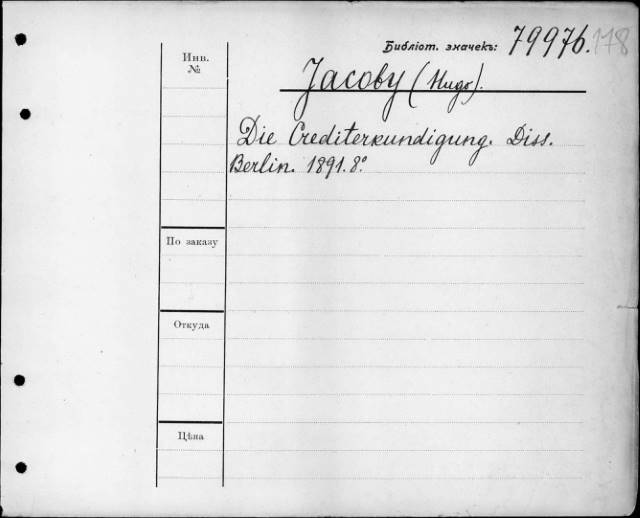 Библіот. значекъ: 79976.178
Инв.
№
Jacoby (Hugo).
Die Crediterkundigung. Diss.
Berlin. 1891. 8º.
По заказу
Откуда
Цѣна